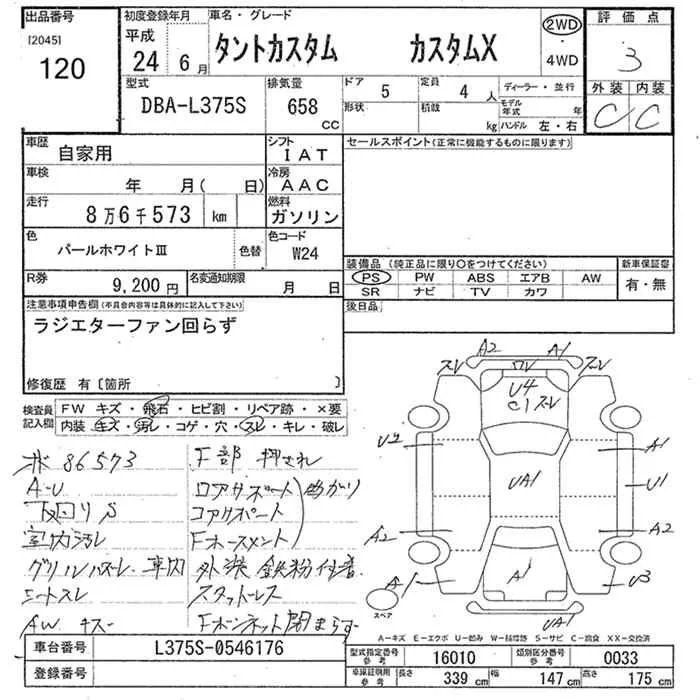 出品番号 初度登録年月 車名・グレード 2WD 評価点
[2045] 平成 タントカスタム カスタムX ・ 3
120 24年 6月 4WD
型式 排気量 ドア 5 定員 4人 ディーラー・並行 外装 内装
DBA-L375S 658 cc 形状 積載 kg モデル年式 年 C C
ハンドル 左・右
車歴 自家用 シフト IAT セールスポイント(正常に機能するものに限ります)
車検 年 月( 日) 冷房 AAC
走行 8万6千573 km 燃料 ガソリン
色 パールホワイトⅢ 色替 色コード W24
装備品 (純正品に限り○をつけてください) 新車保証書
R券 9,200円 名変通知期限 月 日 PS PW ABS エアB AW 有・無
SR ナビ TV カワ
注意事項申告欄(不具合内容等は具体的に記入して下さい) 後日品
ラジエターファン回らず
修復歴 有〔箇所 〕
検査員 FW キズ・飛石・ヒビ割・リペア跡・×要
記入欄 内装・キズ・汚レ・コゲ・穴・スレ・キレ・破レ
86573 F部 押され
A-U ロアサポート 曲がり
下回りS コアサポート
室内汚レ Fホースメント
グリルハズレ 車内 外装 鉄粉付着
シートスレ スタットレス
AW キズ Fボンネット閉まらず
A2 A1
スレ ワレ スレ
U4
C1 スレ
U2 A1
UA1 U1
A2 A2
A1 A1 U3
スペア UA1
A-キズ E-エクボ U-凹み W-補修跡 S-サビ C-腐食 XX-交換済
車台番号 L375S-0546176 型式指定番号 参考 16010 類別区分番号 参考 0033
登録番号 車庫証明用 参考 長さ 339cm 幅 147cm 高さ 175cm